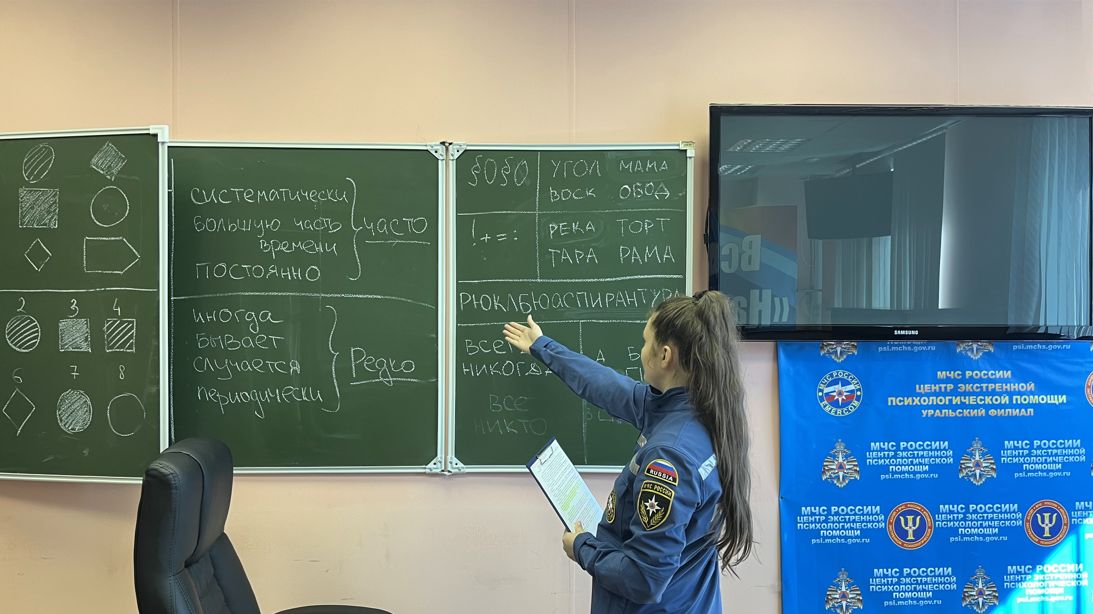 2 3 4
6 7 8
систематически
большую часть
времени
постоянно
часто
иногда
бывает
случается
периодически
Редко
§0§0
УГОЛ МАМА
ВОСК ОБОД
!+=:
РЕКА ТОРТ
ТАРА РАМА
РЮКЛБЮАСПИРАНТУРА
ВСЕ
НИКТО
SAMSUNG
RUSSIA
МЧС РОССИИ
psi.mchs.gov.ru
psi.mchs.gov.ru
МЧС РОССИИ
EMERCOM
МЧС РОССИИ
ЦЕНТР ЭКСТРЕННОЙ
ПСИХОЛОГИЧЕСКОЙ ПОМОЩИ
УРАЛЬСКИЙ ФИЛИАЛ
МЧС РОССИИ
ЦЕНТР ЭКСТРЕННОЙ
ПСИХОЛОГИЧЕСКОЙ
ПОМОЩИ
psi.mchs.gov.ru
МЧС РОССИИ
ЦЕНТР ЭКСТРЕННОЙ
ПСИХОЛОГИЧЕСКОЙ
ПОМОЩИ
psi.mchs.gov.ru
МЧС РОССИИ
ЦЕНТР ЭКСТРЕННОЙ
ПСИХОЛОГИЧЕСКОЙ
ПОМОЩИ
psi.mchs.gov.ru
МЧС РОССИИ
ЦЕНТР ЭКСТРЕННОЙ
ПСИХОЛОГИЧЕСКОЙ
ПОМОЩИ
psi.mchs.gov.ru
МЧС РОССИИ
ЦЕНТР ЭКСТРЕННОЙ
ПСИХОЛОГИЧЕСКОЙ
ПОМОЩИ
psi.mchs.gov.ru
МЧС РОССИИ
ЦЕНТР ЭКСТРЕННОЙ
ПСИХОЛОГИЧЕСКОЙ
ПОМОЩИ
psi.mchs.gov.ru